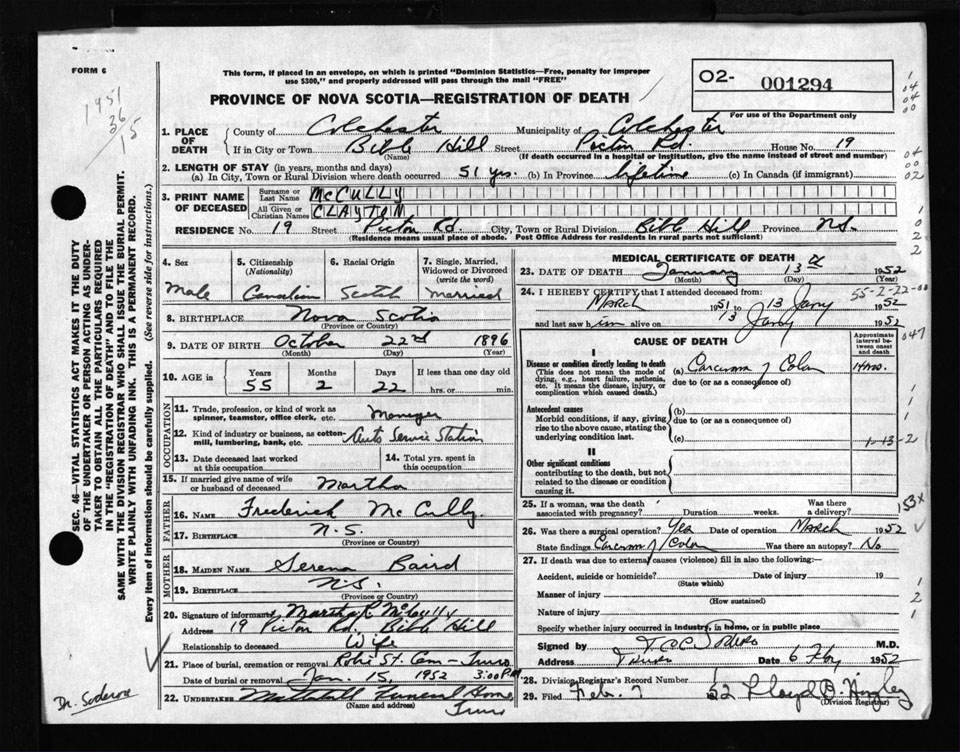 FORM 6
1951
36
15
This form, if placed in an envelope, on which is printed "Dominion Statistics—Free, penalty for improper
use $300," and properly addressed will pass through the mail "FREE"
PROVINCE OF NOVA SCOTIA—REGISTRATION OF DEATH
02- 001294
For use of the Department only
1. PLACE OF DEATH
County of Colchester Municipality of Colchester
If in City or Town Bible Hill Street Picton Rd. House No. 19
(Name) (If death occurred in a hospital or institution, give the name instead of street and number)
2. LENGTH OF STAY (in years, months and days)
(a) In City, Town or Rural Division where death occurred 51 yrs. (b) In Province lifetime (c) In Canada (if immigrant)
3. PRINT NAME OF DECEASED
Surname or Last Name McCULLY
All Given or Christian Names CLAYTON
RESIDENCE No. 19 Street Picton Rd. City, Town or Rural Division Bible Hill Province N.S.
(Residence means usual place of abode. Post Office Address for residents in rural parts not sufficient)
4. Sex
Male
5. Citizenship
(Nationality)
Canadian
6. Racial Origin
Scotch
7. Single, Married, Widowed or Divorced
(write the word)
Married
8. BIRTHPLACE Nova Scotia
(Province or Country)
9. DATE OF BIRTH October 22nd 1896
(Month) (Day) (Year)
10. AGE in Years Months Days If less than one day old
55 2 22 hrs. or min.
OCCUPATION
11. Trade, profession, or kind of work as
spinner, teamster, office clerk, etc. Manager
12. Kind of industry or business, as cotten-
mill, lumbering, bank, etc. Auto Service Station
13. Date deceased last worked
at this occupation
14. Total yrs. spent in
this occupation
15. If married give name of wife
or husband of deceased Martha
FATHER
16. NAME Frederick McCully
17. BIRTHPLACE N.S.
(Province or Country)
MOTHER
18. MAIDEN NAME Serena Baird
19. BIRTHPLACE N.S.
(Province or Country)
20. Signature of informant Martha R McCully
Address 19 Picton Rd. Bible Hill
Relationship to deceased Wife
21. Place of burial, cremation or removal Robie St. Cem - Truro
Date of burial or removal Jan. 15, 1952 3:00 P.M
22. UNDERTAKER Funeral Home
(Name and address) Truro
MEDICAL CERTIFICATE OF DEATH
23. DATE OF DEATH January 13th 1952
(Month) (Day) (Year)
24. I HEREBY CERTIFY that I attended deceased from:
March 1951 to 13 Jany 1952
55-2-22-00
and last saw him alive on 13 Jany 1952
CAUSE OF DEATH
Approximate interval between onset and death
I
Disease or condition directly leading to death
(This does not mean the mode of
dying, e.g., heart failure, asthenia,
etc. It means the disease, injury, or
complication which caused death.)
(a) Carcinoma of Colon
due to (or as a consequence of)
Antecedent causes
Morbid conditions, if any, giving
rise to the above cause, stating the
underlying condition last.
(b)
due to (or as a consequence of)
(c)
1-13-2
II
Other significant conditions
contributing to the death, but not
related to the disease or condition
causing it.
25. If a woman, was the death
associated with pregnancy? Duration weeks. Was there a delivery?
26. Was there a surgical operation? Yes Date of operation March 1952
State findings Carcinoma of Colon Was there an autopsy? No
27. If death was due to external causes (violence) fill in also the following:—
Accident, suicide or homicide? Date of injury 19
(State which)
Manner of injury
(How sustained)
Nature of injury
Specify whether injury occurred in industry, in home, or in public place
Signed by M.D.
Address Truro Date 6 Feby 1952
28. Division Registrar's Record Number 1
29. Filed Feb. 7 52 Lloyd B.
(Division Registrar)
SEC. 46—VITAL STATISTICS ACT MAKES IT THE DUTY
OF THE UNDERTAKER OR PERSON ACTING AS UNDER-
TAKER TO OBTAIN ALL THE PARTICULARS REQUIRED
IN THE "REGISTRATION OF DEATH" AND TO FILE THE
SAME WITH THE DIVISION REGISTRAR WHO SHALL ISSUE THE BURIAL PERMIT.
WRITE PLAINLY WITH UNFADING INK. THIS IS A PERMANENT RECORD.
Every item of information should be carefully supplied. (See reverse side for instructions.)